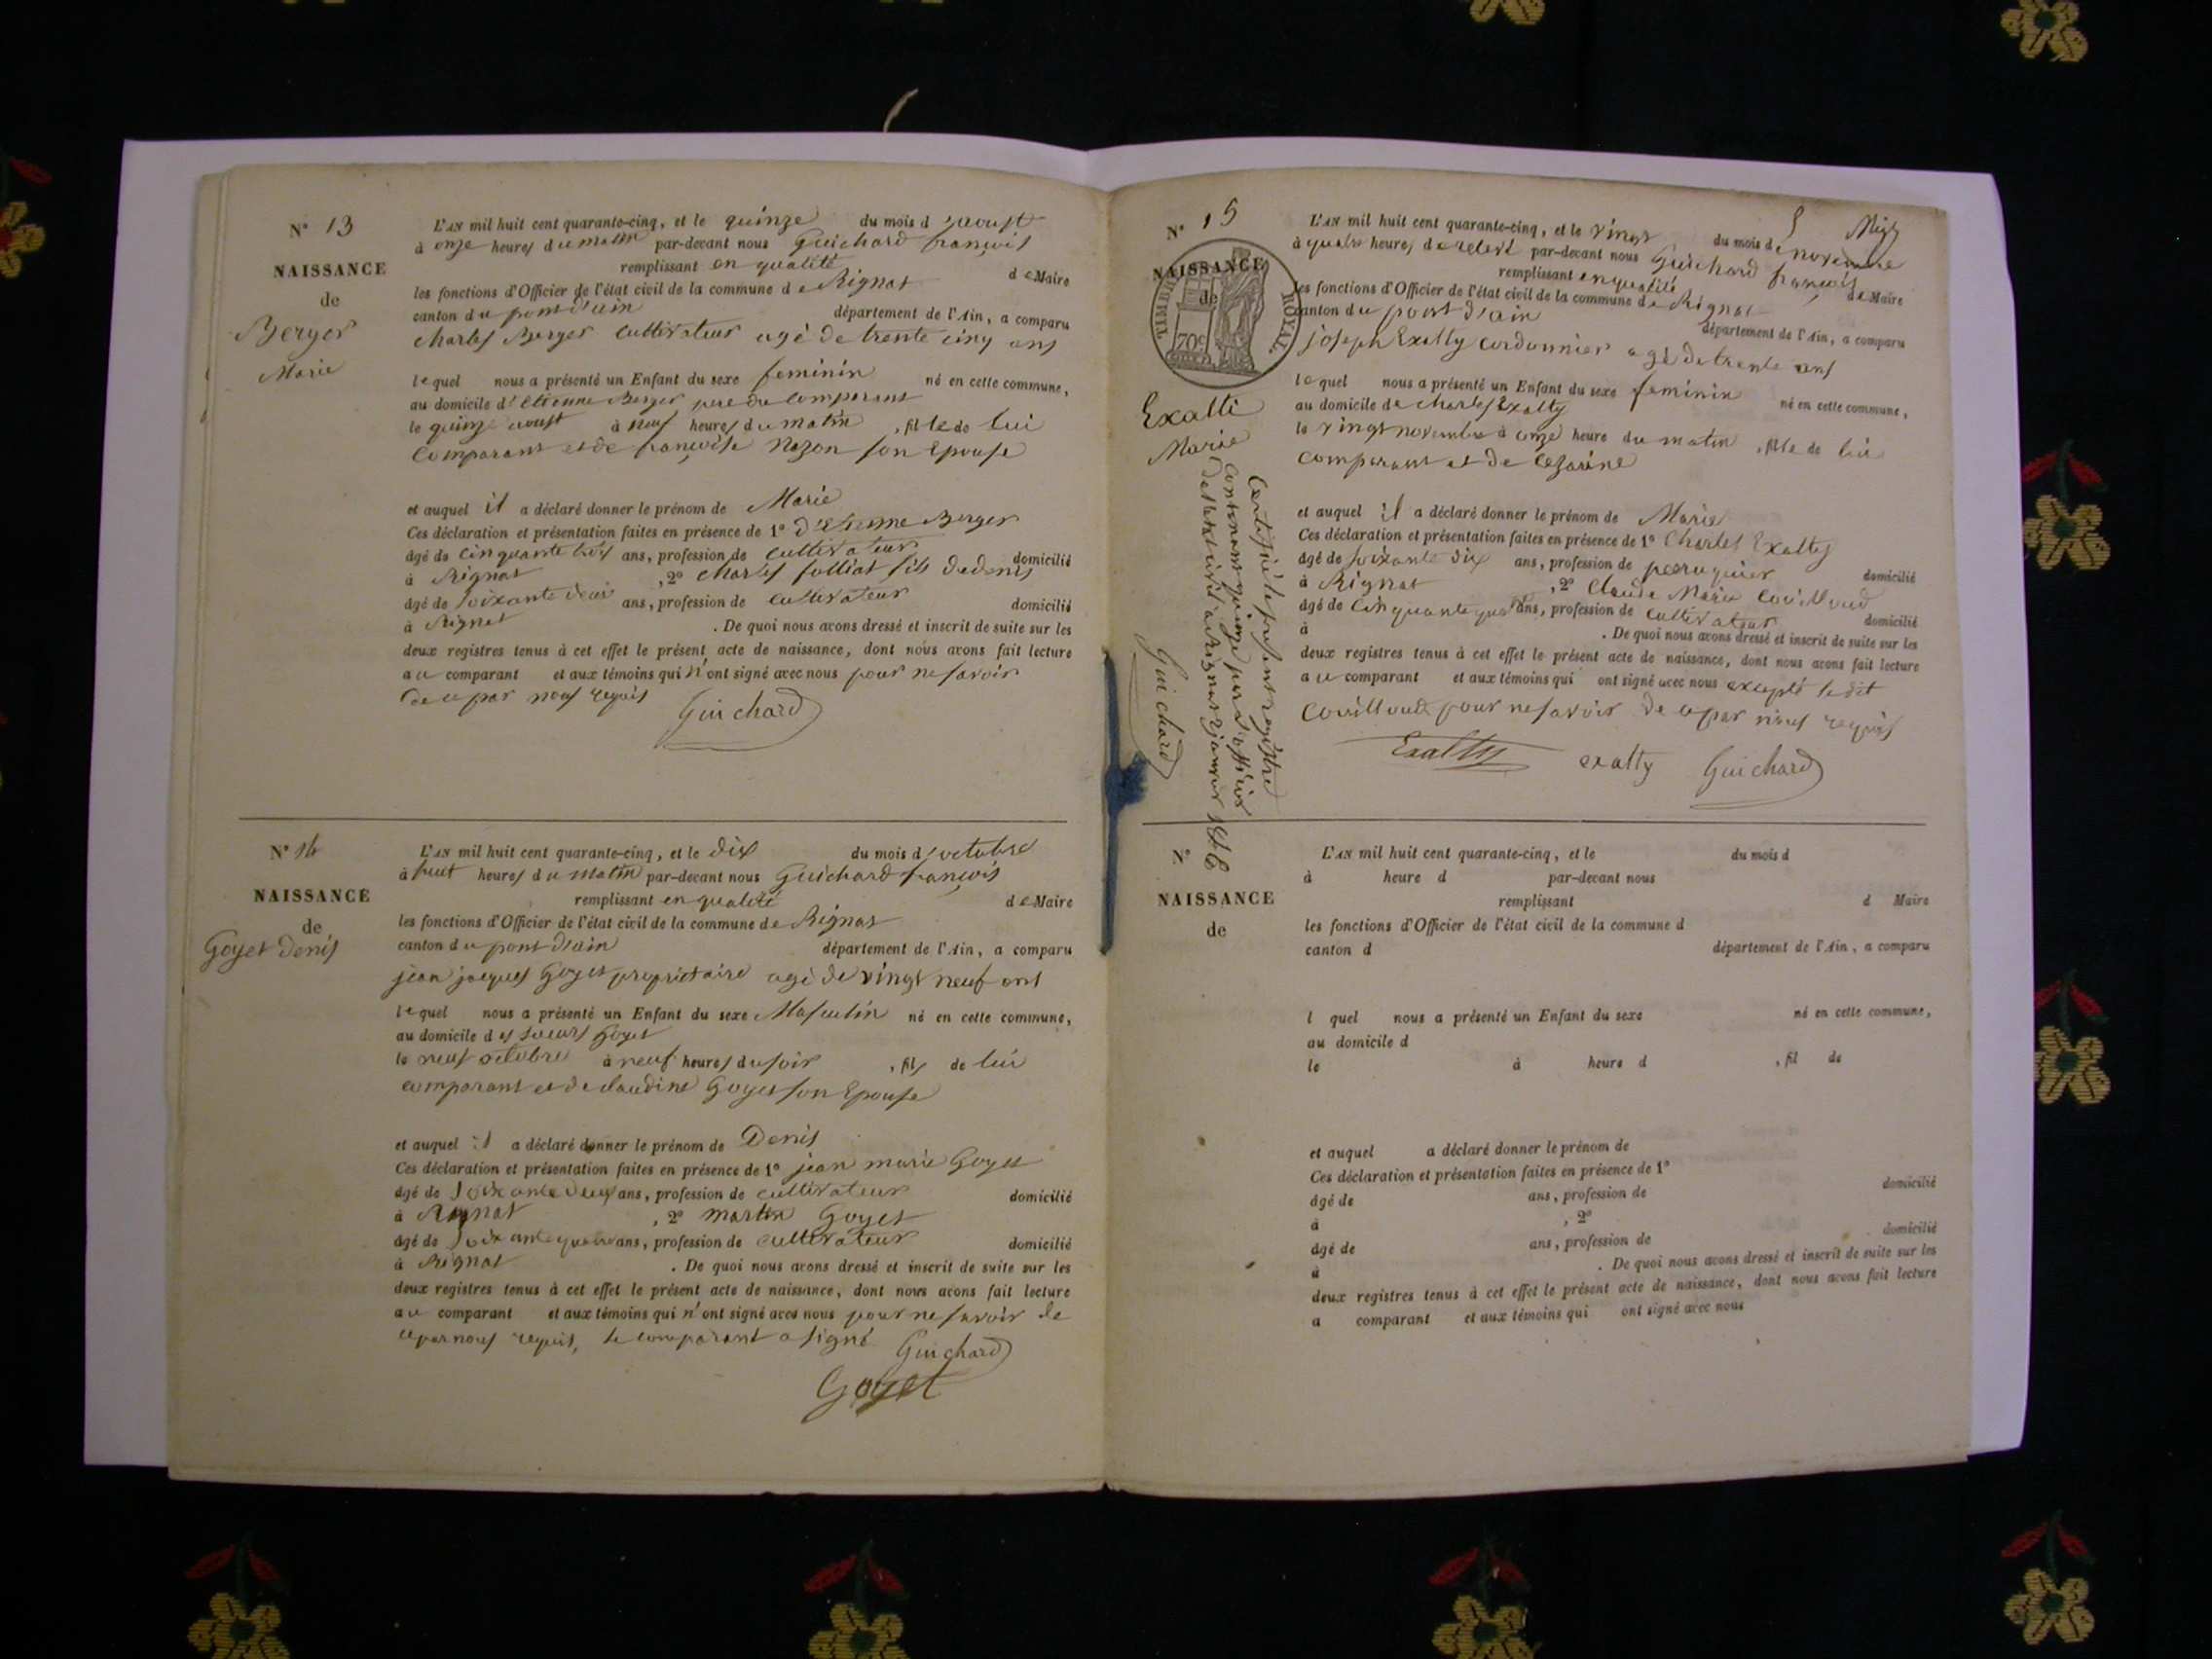 N° 13
NAISSANCE
de
Berger
Marie
L'AN mil huit cent quarante-cinq, et le quinze du mois d'aoust
à onze heures du matin par-devant nous Guichard françois
remplissant en qualité de Maire
les fonctions d'Officier de l'état civil de la commune de Rignat
canton du pont d'ain département de l'Ain, a comparu
charles Berger cultivateur agé de trente cinq ans
lequel nous a présenté un Enfant du sexe feminin né en cette commune,
au domicile d'etienne Berger pere du comparant
le quinze aoust à neuf heures du matin, fille de lui
comparant et de françoise Nezon son Epouse
et auquel il a déclaré donner le prénom de Marie
Ces déclaration et présentation faites en présence de 1° d'etienne Berger
âgé de cinquante trois ans, profession de cultivateur domicilié
à Rignat, 2° charles folliat fils de denis
âgé de soixante deux ans, profession de cultivateur domicilié
à Rignat. De quoi nous avons dressé et inscrit de suite sur les
deux registres tenus à cet effet le présent acte de naissance, dont nous avons fait lecture
au comparant et aux témoins qui n'ont signé avec nous pour ne savoir
de ce par nous requis
Guichard
N° 14
NAISSANCE
de
Goyet Denis
L'AN mil huit cent quarante-cinq, et le dix du mois d'octobre
à huit heures du matin par-devant nous Guichard françois
remplissant en qualité de Maire
les fonctions d'Officier de l'état civil de la commune de Rignat
canton du pont d'ain département de l'Ain, a comparu
jean jacques Goyet propriétaire agé de vingt neuf ans
lequel nous a présenté un Enfant du sexe Masculin né en cette commune,
au domicile des soeurs Goyet
le neuf octobre à neuf heures du soir, fils de lui
comparant et de claudine Goyet son Epouse
et auquel il a déclaré donner le prénom de Denis
Ces déclaration et présentation faites en présence de 1° jean marie Goyet
âgé de soixante deux ans, profession de cultivateur domicilié
à Rignat, 2° martin Goyet
âgé de soixante quatre ans, profession de cultivateur domicilié
à Rignat. De quoi nous avons dressé et inscrit de suite sur les
deux registres tenus à cet effet le présent acte de naissance, dont nous avons fait lecture
au comparant et aux témoins qui n'ont signé avec nous pour ne savoir de
ce par nous requis, le comparant a signé Guichard
Goyet
N° 15
NAISSANCE
de
TIMBRE ROYAL
70c
Exalti
Marie
Certifié le present registre
contenant quinze par l'officier
de l'état civil a Rignat janvier 1846
Guichard
L'AN mil huit cent quarante-cinq, et le vingt du mois de novembre
à quatre heures de relevé par-devant nous Guichard françois
remplissant en qualité de Maire
les fonctions d'Officier de l'état civil de la commune de Rignat
canton du pont d'ain département de l'Ain, a comparu
joseph Exalty cordonnier agé de trente ans
lequel nous a présenté un Enfant du sexe feminin né en cette commune,
au domicile de charles Exalty
le vingt novembre à onze heure du matin, fille de lui
comparant et de Cezarine
et auquel il a déclaré donner le prénom de Marie
Ces déclaration et présentation faites en présence de 1° Charles Exalty
âgé de soixante dix ans, profession de perruquier domicilié
à Rignat, 2° Claude Marie Couilloud
âgé de cinquante quatre ans, profession de cultivateur domicilié
à . De quoi nous avons dressé et inscrit de suite sur les
deux registres tenus à cet effet le présent acte de naissance, dont nous avons fait lecture
au comparant et aux témoins qui ont signé avec nous excepté le dit
Couilloud pour ne savoir de ce par nous requis
Exalty exalty Guichard
N°
NAISSANCE
de
L'AN mil huit cent quarante-cinq, et le du mois d
à heure d par-devant nous
remplissant d Maire
les fonctions d'Officier de l'état civil de la commune d
canton d département de l'Ain, a comparu
l quel nous a présenté un Enfant du sexe né en cette commune,
au domicile d
le à heure d , fil de
et auquel a déclaré donner le prénom de
Ces déclaration et présentation faites en présence de 1°
âgé de ans, profession de domicilié
à , 2°
âgé de ans, profession de domicilié
à . De quoi nous avons dressé et inscrit de suite sur les
deux registres tenus à cet effet le présent acte de naissance, dont nous avons fait lecture
a comparant et aux témoins qui ont signé avec nous